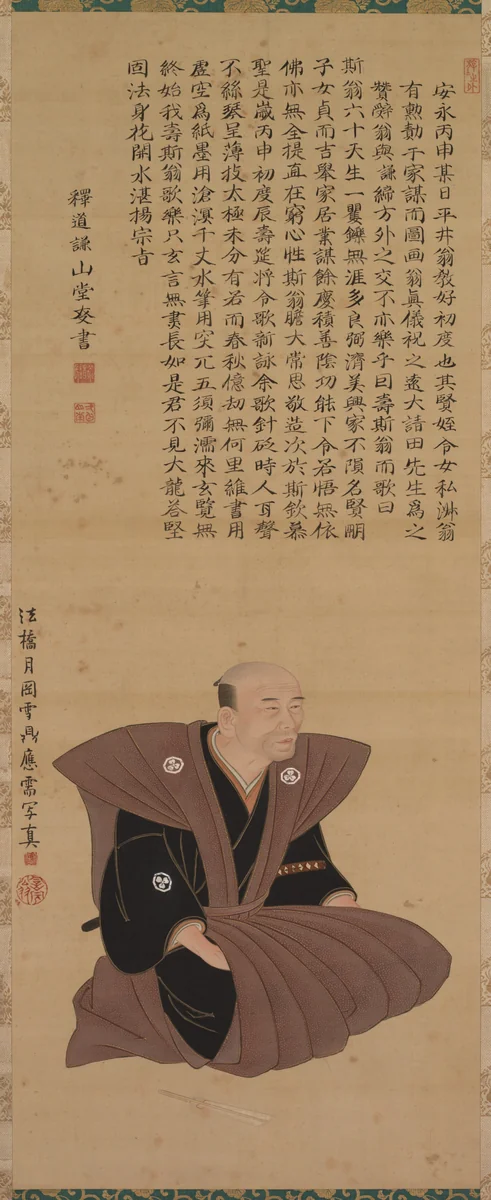 安永丙申某日平井翁敎好初度也其賢姪令女私淋翁
有勲勣于家謀而圖画翁眞儀祝之遠大請田先生爲之
贊辭翁與謙締方外之交不亦樂乎曰壽斯翁而歌曰
斯翁六十天生一矍鑠無涯多良弼濟美興家不隕名賢朙
子女貞而吉舉家居業謀餘慶積善陰功能下令名悟無依
佛亦無全提直在窮心性斯翁膽大常思敬造次於斯欽慕
聖是歲丙申初度辰壽筵將令歌新詠余歌針砭時人耳聲
不絲琴呈薄技太極未分有若而春秋億劫無何里維書用
虛空爲紙墨用滄溟千丈水筆用突兀五須彌濡來玄覽無
終始我壽斯翁歌樂只玄言無盡長如是君不見大龍荅堅
固法身花開水湛揚宗旨
釋道謙山堂奏書
法橋月岡雪鼎應需写真